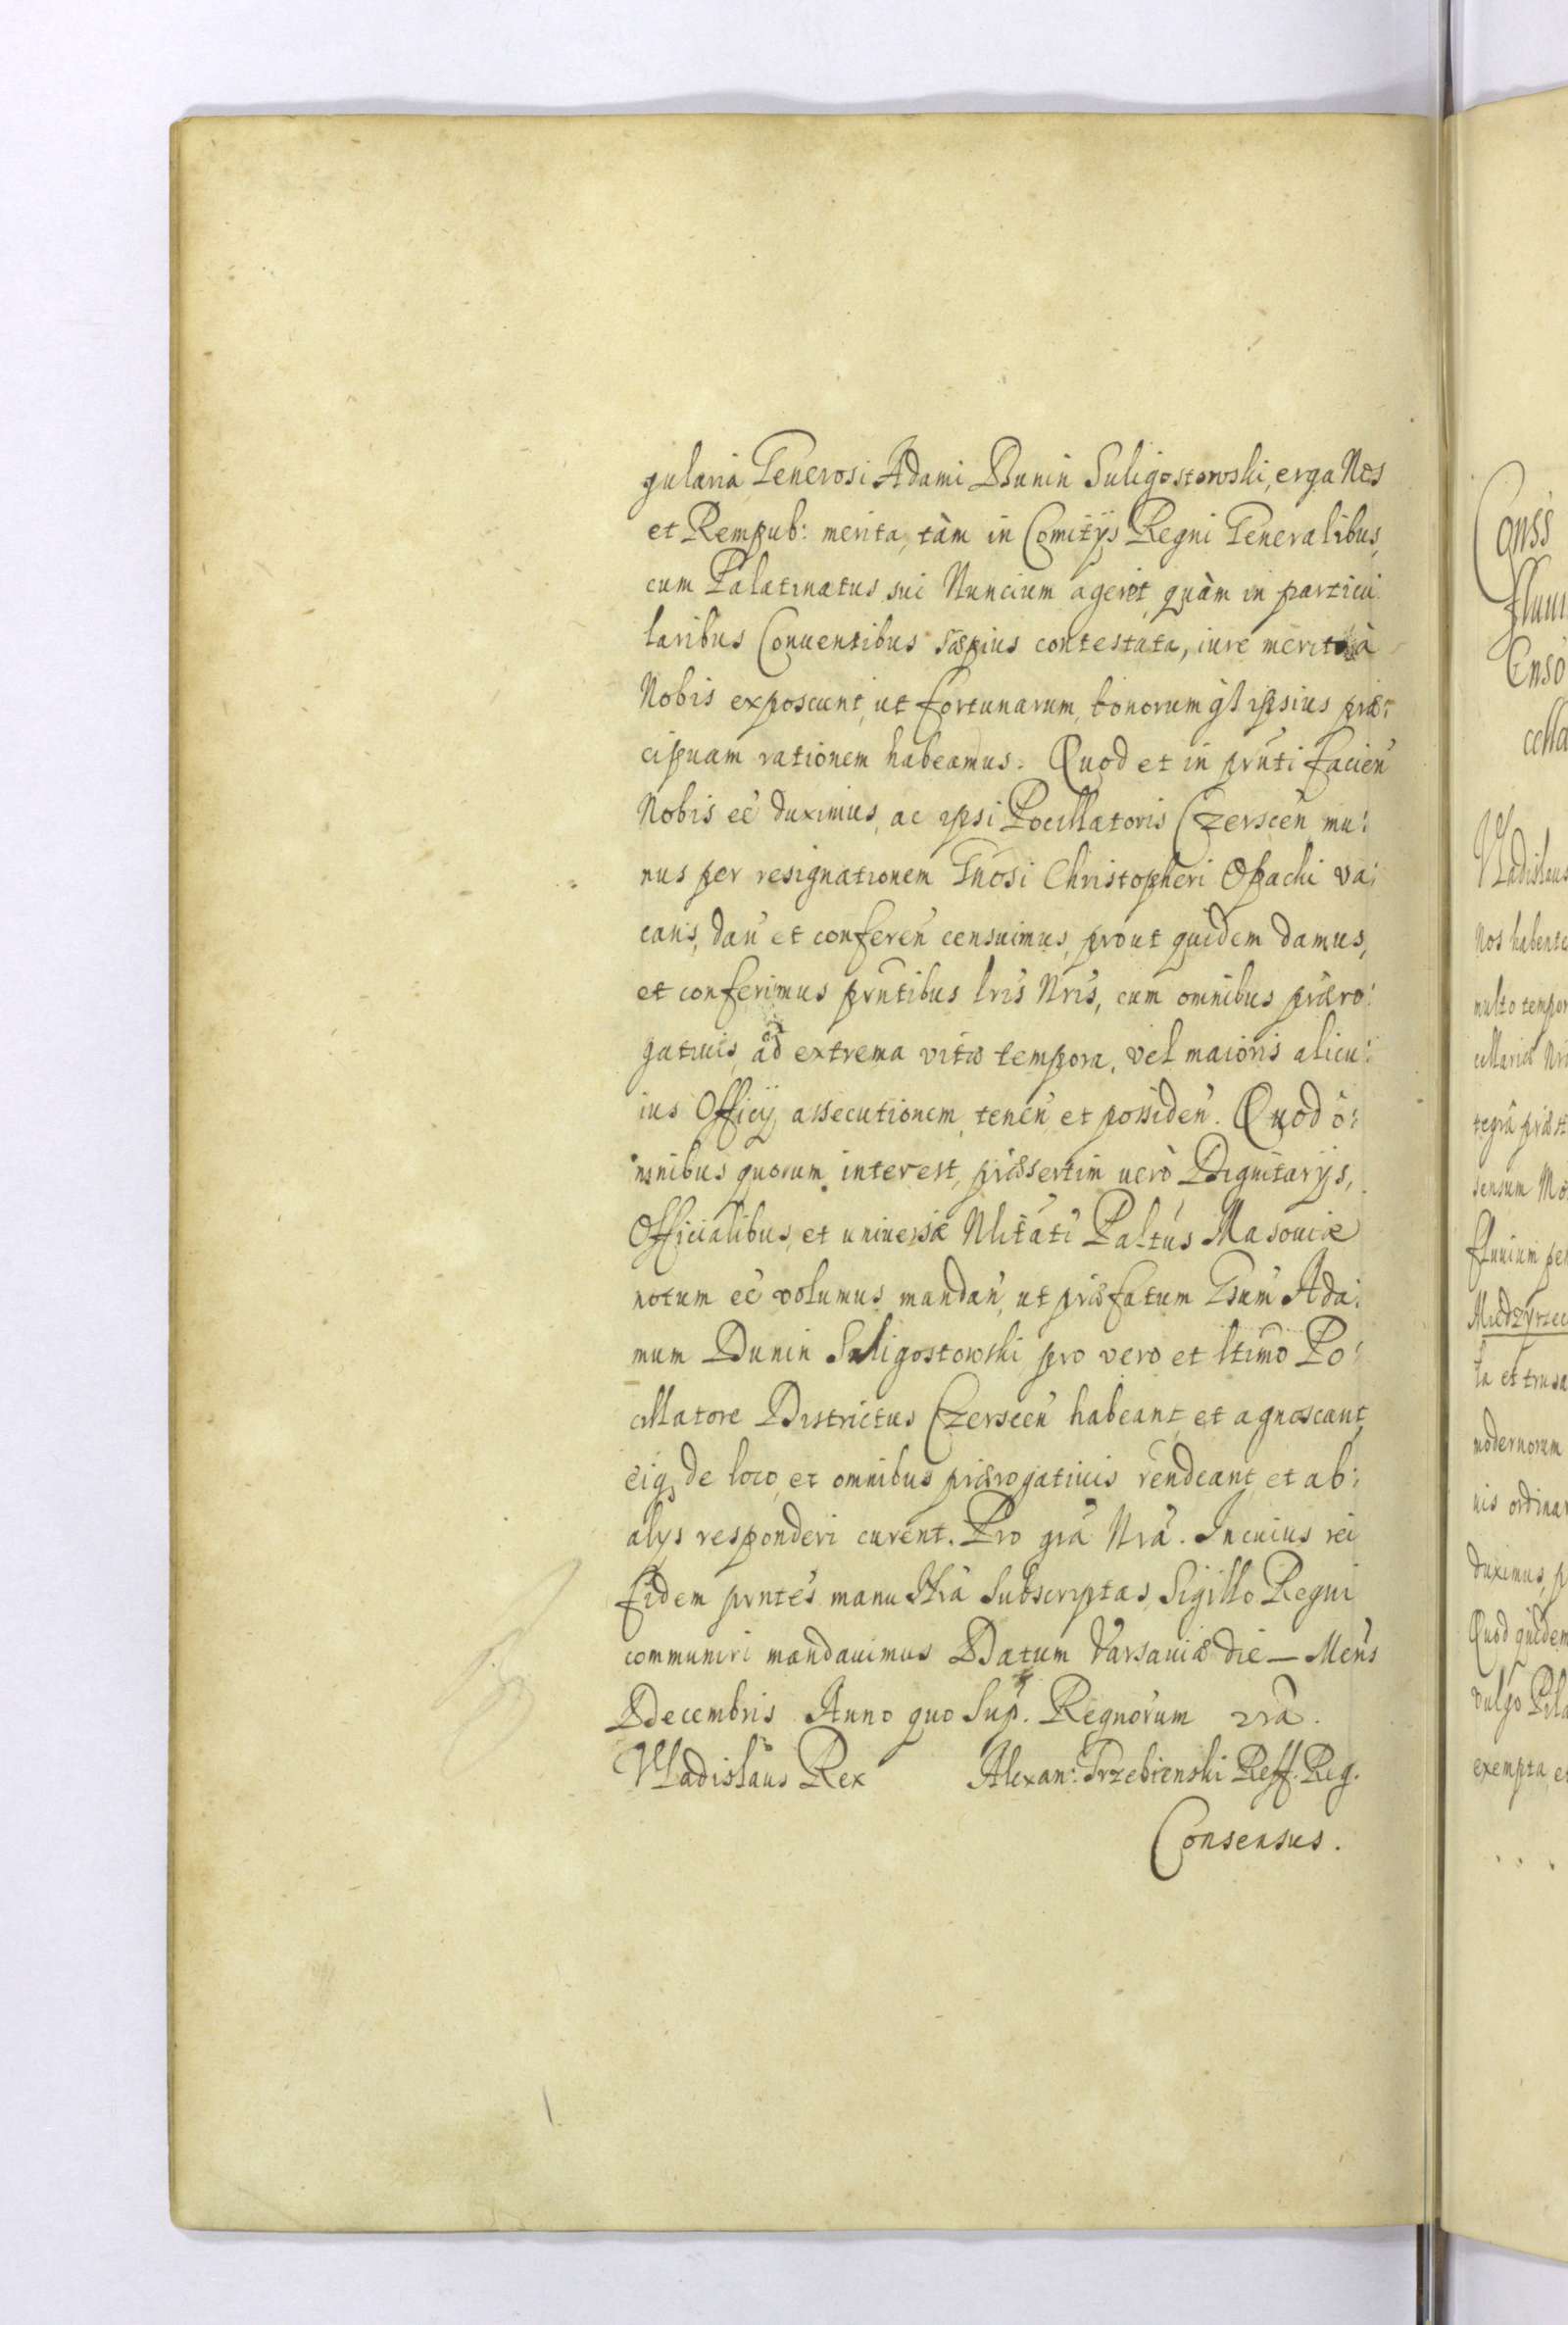 gularia Generosi Adami Dunin Suligostowski, erga Nos
et Rempub: merita, tàm in Comitijs Regni Generalibus,
cum Palatinatus sui Nuncium ageret, quàm in particu:
laribus Conuentibus sæpius contestata, iure merito à
Nobis exposcunt, ut fortunarum, honorumq3 ipsius præ:
cipuam rationem habeamus. Quod et in prnti facien
Nobis eē duximus, ac ipsi Pocillatoris Czerscen mu:
nus per resignationem Gnosi Christopheri Opacki va:
cans, dan et conferen censuimus, prout quidem damus,
et conferimus prntibus lris Nris, cum omnibus præro:
gatiuis, ad extrema vitæ tempora, vel maioris alicu:
ius Officij assecutionem, tenen et possiden. Quod o:
mnibus quorum interest, præsertim uerò Dignitarijs,
Officialibus, et uniuersæ Nlitati Paltus Masouiæ
notum eē volumus, mandan, ut præfatum Gsum Ada:
mum Dunin Suligostowski pro vero et ltimo Po:
cillatore Districtus Czerscen habeant, et agnoscant,
eiq3 de loco, et omnibus prærogatiuis rendeant, et ab:
alijs responderi curent. Pro gra Nra. In cuius rei
fidem prntes manu Nra subscriptas, Sigillo Regni
communiri mandauimus Datum Varsauiæ die — Mens
Decembris Anno quo Sup. Regnorum
Vladislaus Rex Alexan: Trzebienski Reff. Reg.
Consensus.
Conss
Enso
cella
Vladislaus
Nos habente
multo tempor
cellariæ Nri
sensum
fluuium per
Miedzyrzec
ta et trusa
modernorum
nis ordinar
duximus, p
Quod quidem
vulgo Pila
exempta, et